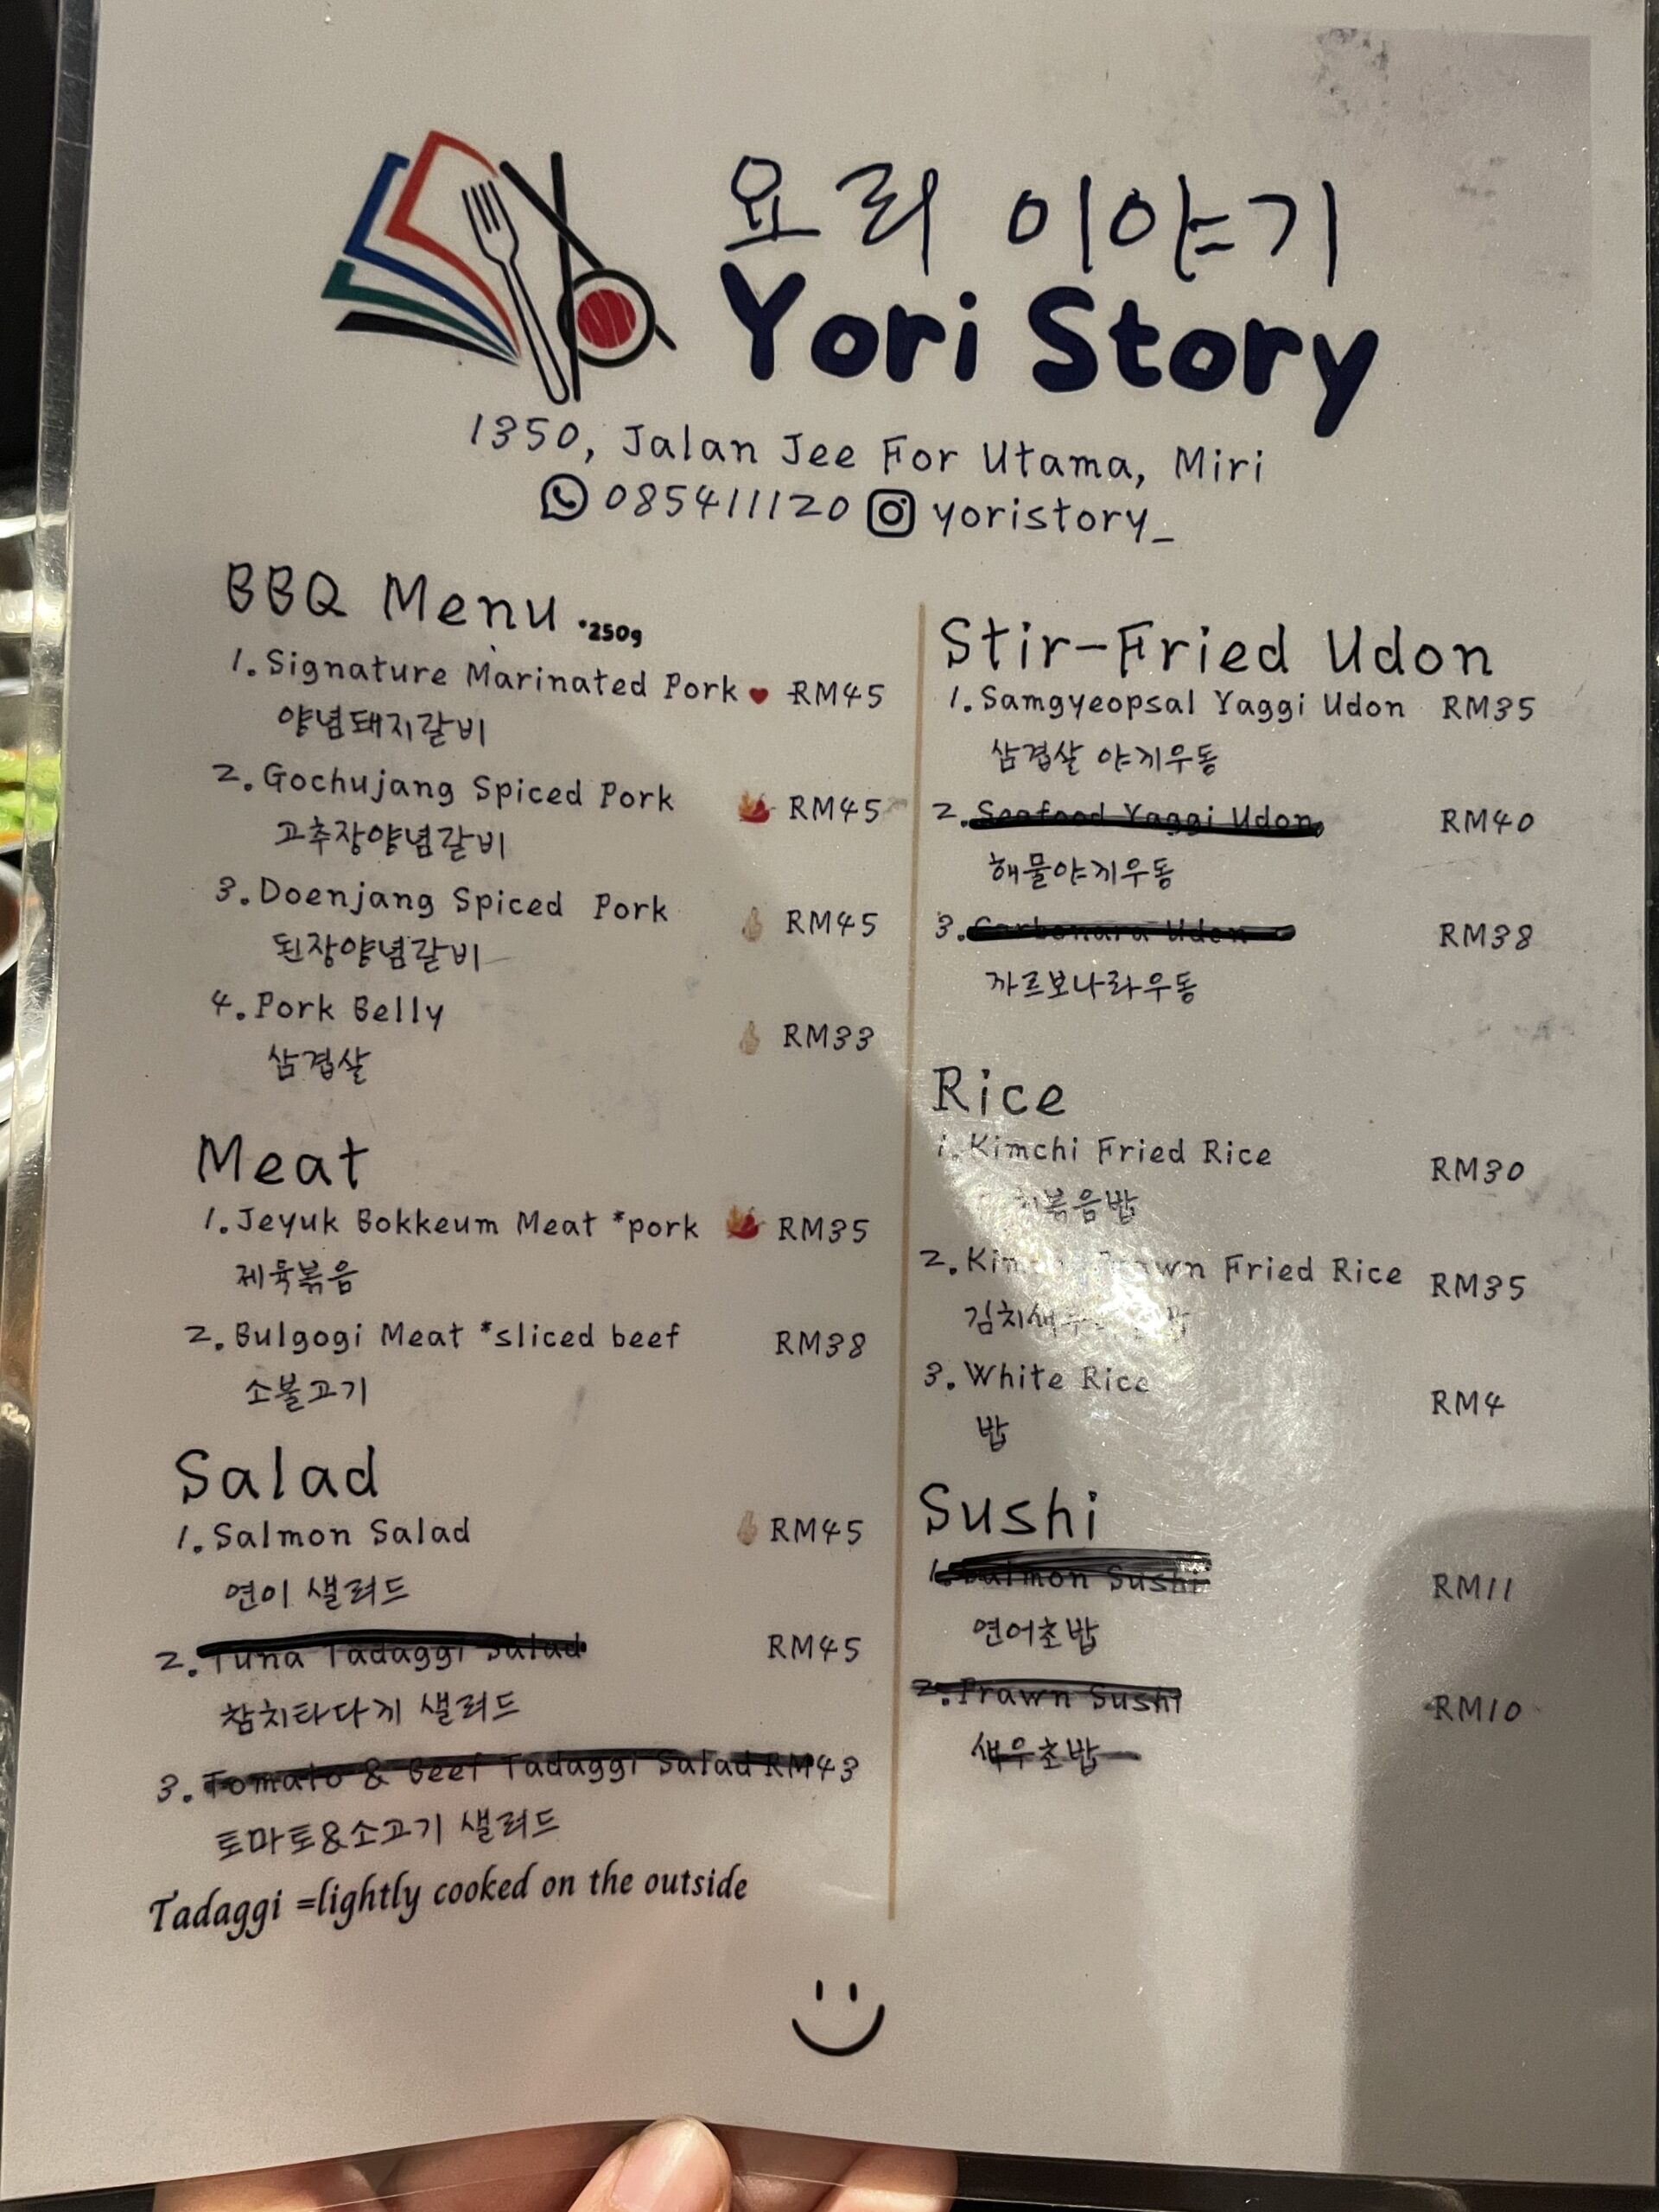 요리 이야기
Yori Story
1350, Jalan Jee Foh Utama, Miri
085411120 yoristory_
BBQ Menu *250g
1. Signature Marinated Pork RM45
양념돼지갈비
2. Gochujang Spiced Pork RM45
고추장양념갈비
3. Doenjang Spiced Pork RM45
된장양념갈비
4. Pork Belly RM33
삼겹살
Meat
1. Jeyuk Bokkeum Meat *pork RM35
제육볶음
2. Bulgogi Meat *sliced beef RM38
소불고기
Salad
1. Salmon Salad RM45
연이 샐러드
2. Tuna Tadaggi Salad RM45
참치타다끼 샐러드
3. Tomato & Beef Tadaggi Salad RM43
토마토&소고기 샐러드
Tadaggi =lightly cooked on the outside
Stir-Fried Udon
1. Samgyeopsal Yaggi Udon RM35
삼겹살 야끼우동
2. Seafood Yaggi Udon RM40
해물야끼우동
3. Carbonara Udon RM38
까르보나라우동
Rice
1. Kimchi Fried Rice RM30
볶음밥
2. Fried Rice RM35
3. White Rice RM4
밥
Sushi
1. Salmon Sushi RM11
연어초밥
2. Prawn Sushi RM10
새우초밥